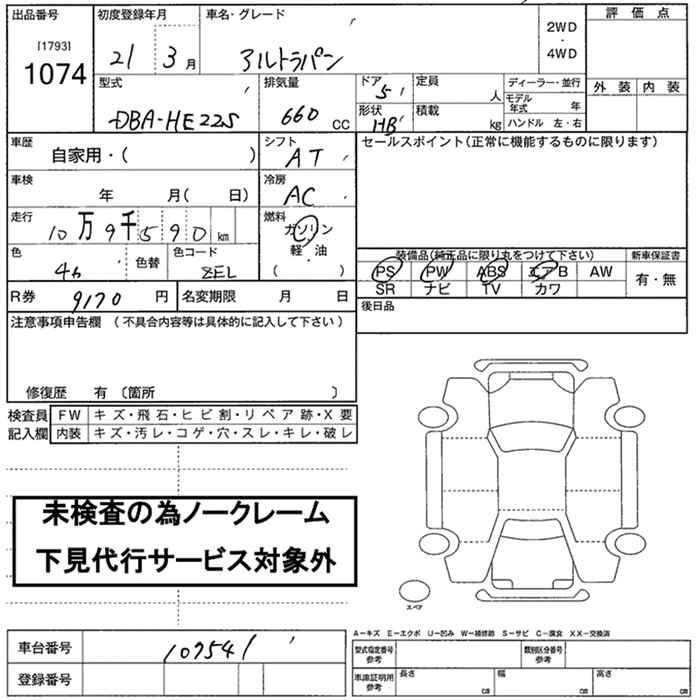 出品番号 初度登録年月 車名・グレード 2WD・4WD 評価点
[1793]
1074 21 3月 アルトラパン
外装 内装
型式 排気量 ドア 定員 ディーラー・並行
DBA-HE22S 660 CC 5 人 モデル年式 年
形状 積載
HB kg ハンドル 左・右
車歴 シフト セールスポイント(正常に機能するものに限ります)
自家用・( ) AT
車検 冷房
年 月( 日) AC
走行 燃料
10万9千590km ガソリン
軽・油
( )
色 色替 色コード
ZEL
装備品(純正品に限り丸をつけて下さい) 新車保証書
PS PW ABS エアB AW 有・無
SR ナビ TV カワ
R券 9170円 名変期限 月 日 後日品
注意事項申告欄 (不具合内容等は具体的に記入して下さい)
修復歴 有 〔箇所 〕
検査員 FW キズ・飛石・ヒビ割・リペア跡・X要
記入欄 内装 キズ・汚レ・コゲ・穴・スレ・キレ・破レ
未検査の為ノークレーム
下見代行サービス対象外
スペア
A-キズ E-エクボ U-凹み W-補修跡 S-サビ C-腐食 XX-交換済
車台番号 107541 型式指定番号参考 類別区分番号参考
登録番号 車庫証明用参考 長さ cm 幅 cm 高さ cm